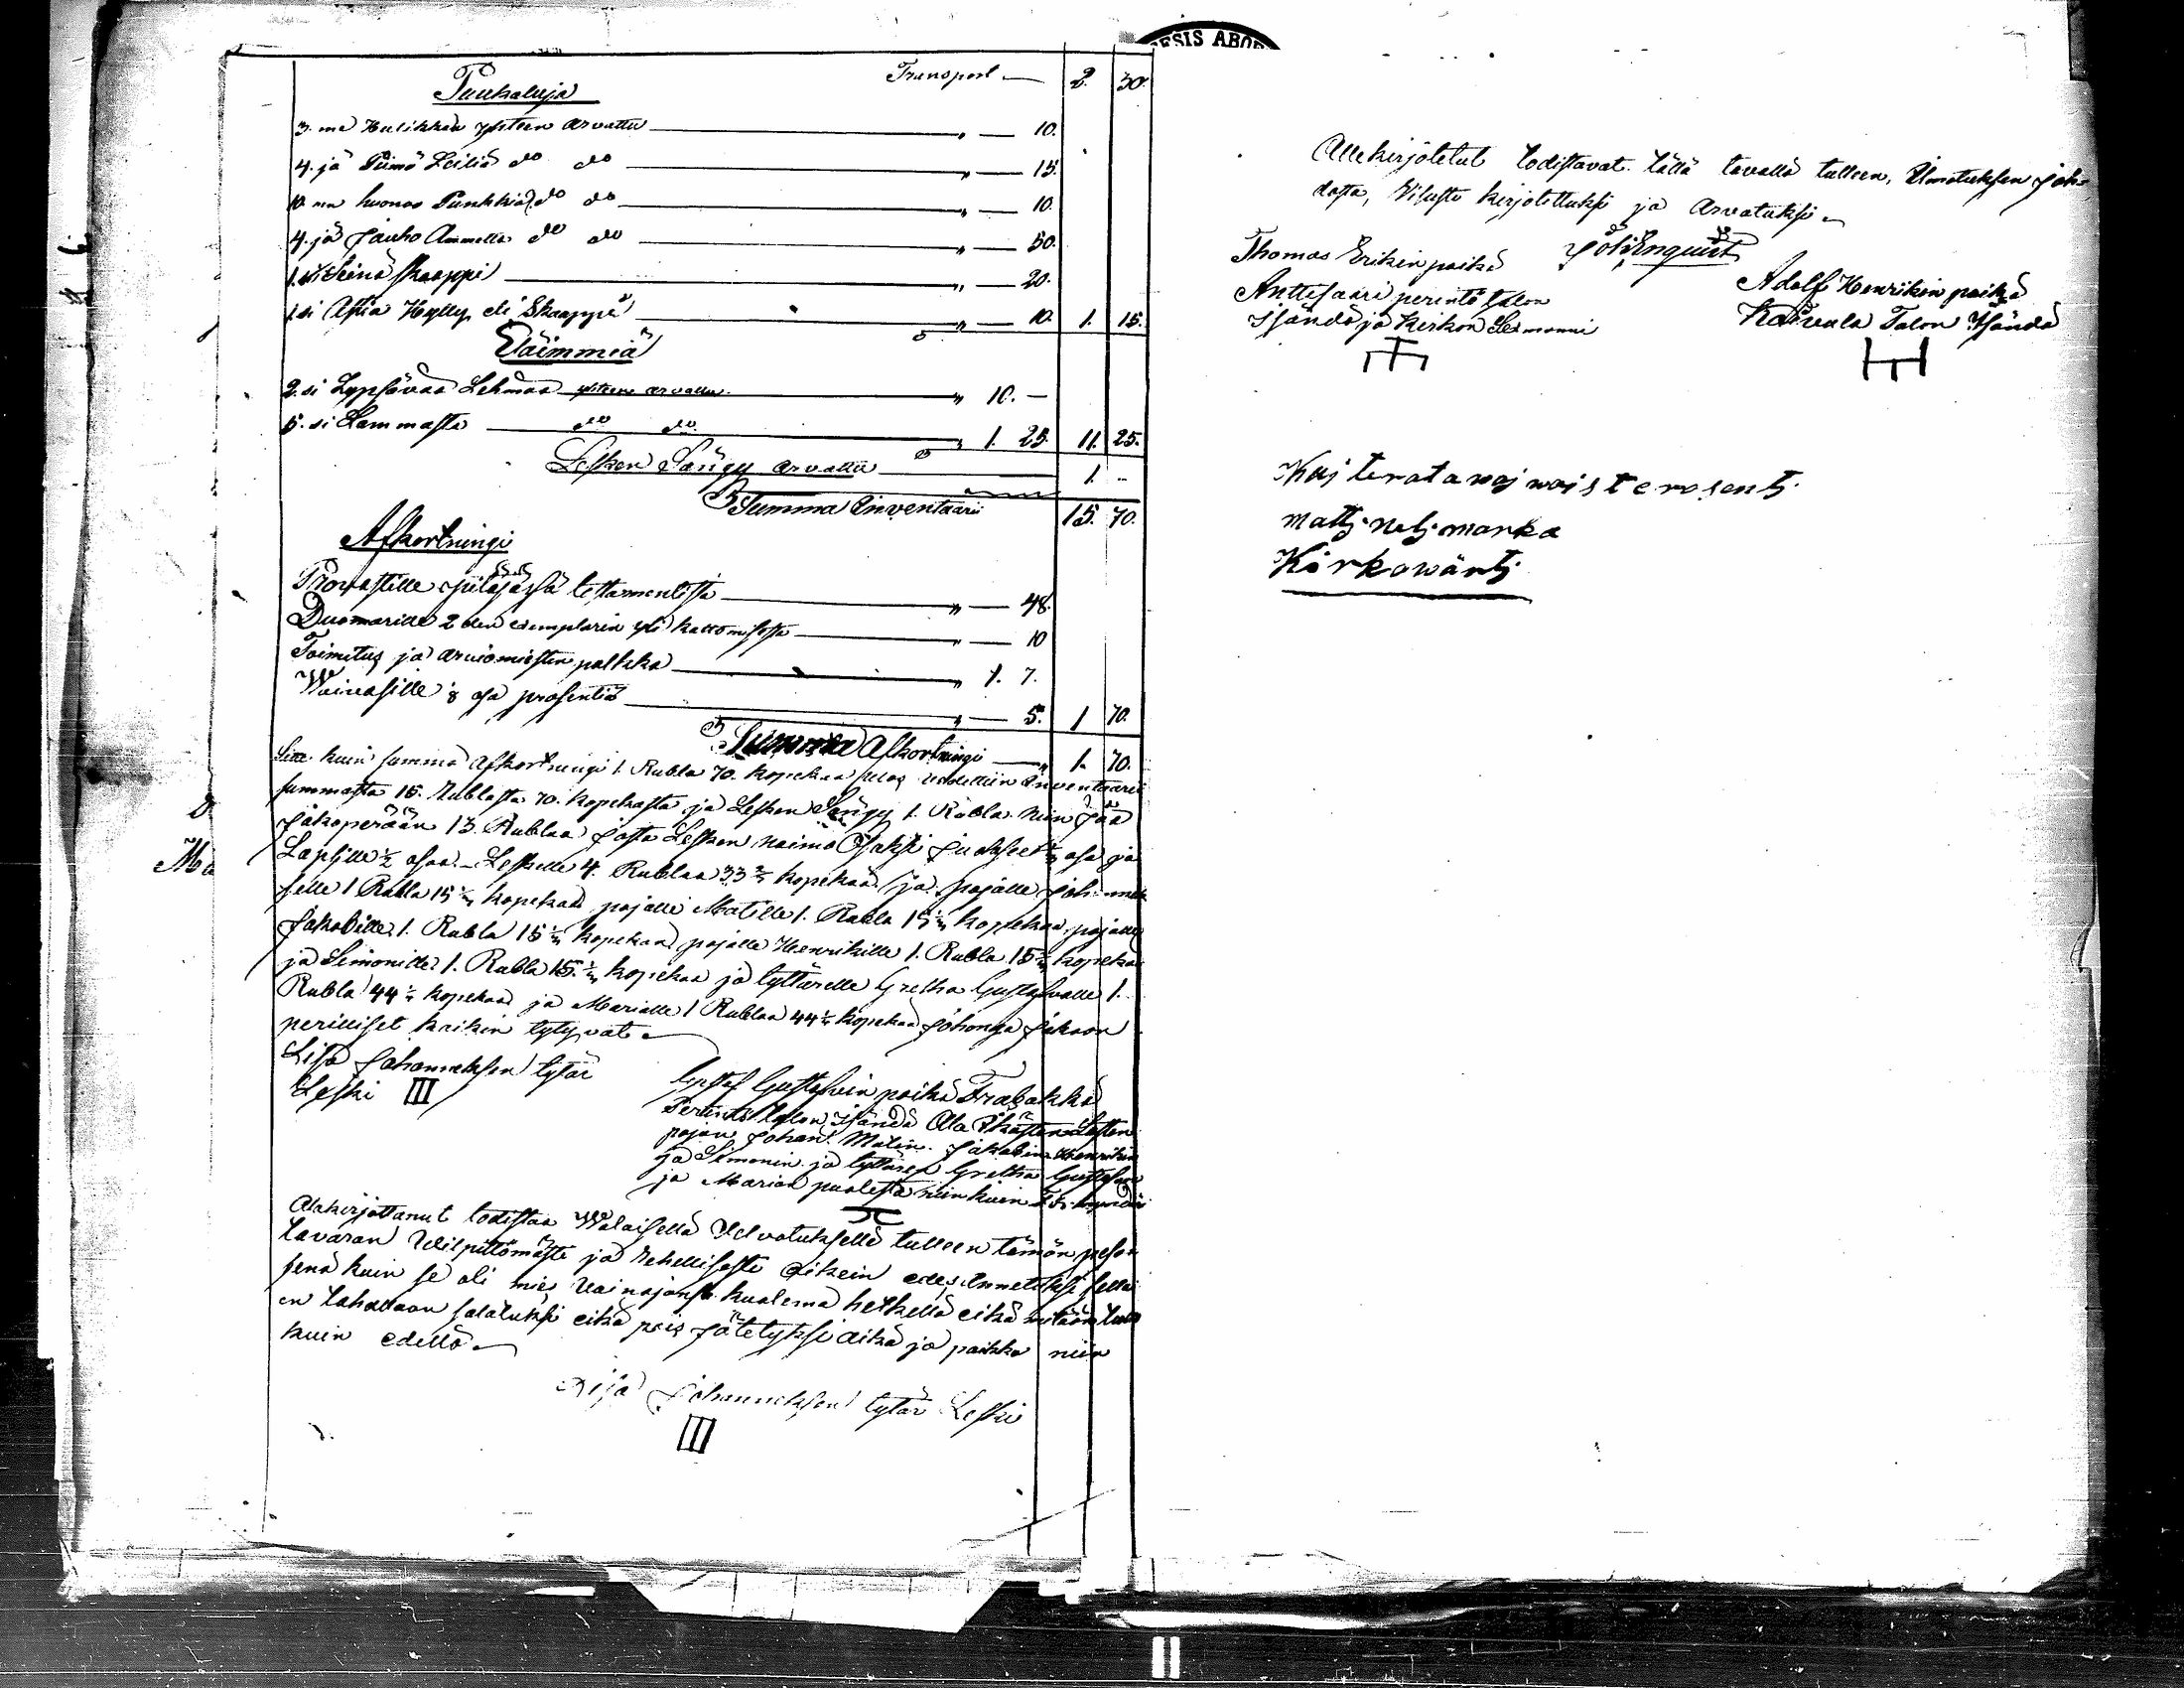 ESIS ABO
Transport — 2. 30.
Puukaluja
3. me Kulikkaa yhteen arvattu — " — 10.
4. jä Piimä Leiliä do do — " — 15.
10 nn huonoo Punkkia do do — " — 10.
4. jä Jauho Ammetta do do — " — 50.
1. si Seinä skaappi — " — 20.
1. si Astia Hylly eli Skaappi — " — 10. 1. 15.
Eläimmiä
2. si Lypsävää Lehmää yhteen arvattu — " 10. —
5. si Lammasta do do — " 1. 25. 11. 25.
Lesken Sängy arvattu — 1. "
Summa Inventaarii 15. 70.
Afkortningi
Provastille pitäjässä testamentista — " — 48.
Duomarille 2 den exemplarin yli kattomisesta — " — 10
Toimitus ja arviomiesten palkka — " 1. 7.
Waivasille 8 osa prosentiä — " — 5. 1 70.
Summa Afkortningi — " 1. 70.
kuin summa Afkortningi 1. Rubla 70. kopekaa ulos vedettiin Inventaarii
summasta 15. Rublasta 70. kopekasta ja Lesken Sängy 1. Rubla. niin Jää
Jakoperään 13. Rublaa josta Lesken naima Osaksi juoksee osa ja
Lapsille osaa. — Leskelle 4. Rublaa 33 kopekaa ja pojalle Joh
selle 1 Rubla 15 kopekaa pojalle Matille 1. Rubla 15 kopekaa pojalle
Jakobille 1. Rubla 15 kopekaa pojalle Henrikille 1. Rubla 15 kopekaa
ja Simonille 1. Rubla 15. kopekaa ja tyttärelle Gretha Gustafvalle 1.
Rubla 44 kopekaa ja Marialle 1 Rublaa 44 kopekaa johonga jakoon
perilliset kaikin tytyvät
Lisa Johanneksen tytär
Leski III
Gustaf Gustafvin poika Trabakka
Perintö Talon Isändä Ala Ikästen Lasten
pojan Johan. Matin. Jakobin Henrikin
ja Simonin ja tyttären Gretha Gustafvan
ja Marian puolesta niin kuin
Alakirjottanut todistaa Walaisella Velvotuksella tulleen tämän pesän
tavaran Vilpittömästi ja Rehellisesti Oikein edes Annetuksi sellai
sena kuin se oli mies Vainajansa kualema hetkellä eikä mitään tul
en tahallaan salatuksi eikä pois jätetyksi aika ja paikka niin
kuin edellä
Lisa Johanneksen tytär Leski
III
Allekirjotetut todistavat tällä tavalla tulleen, Ilmotuksen joh
dosta, Visusti kirjotettuksi ja Arvatuksi
Joh Enquist
Thomas Erikin poika
Anttisaari perintö talon
Isändä ja Kirkon Sexmanni
Adolf Henrikin poika
Kaivula Talon Isändä
matti neljmarka
Kirkowärtj